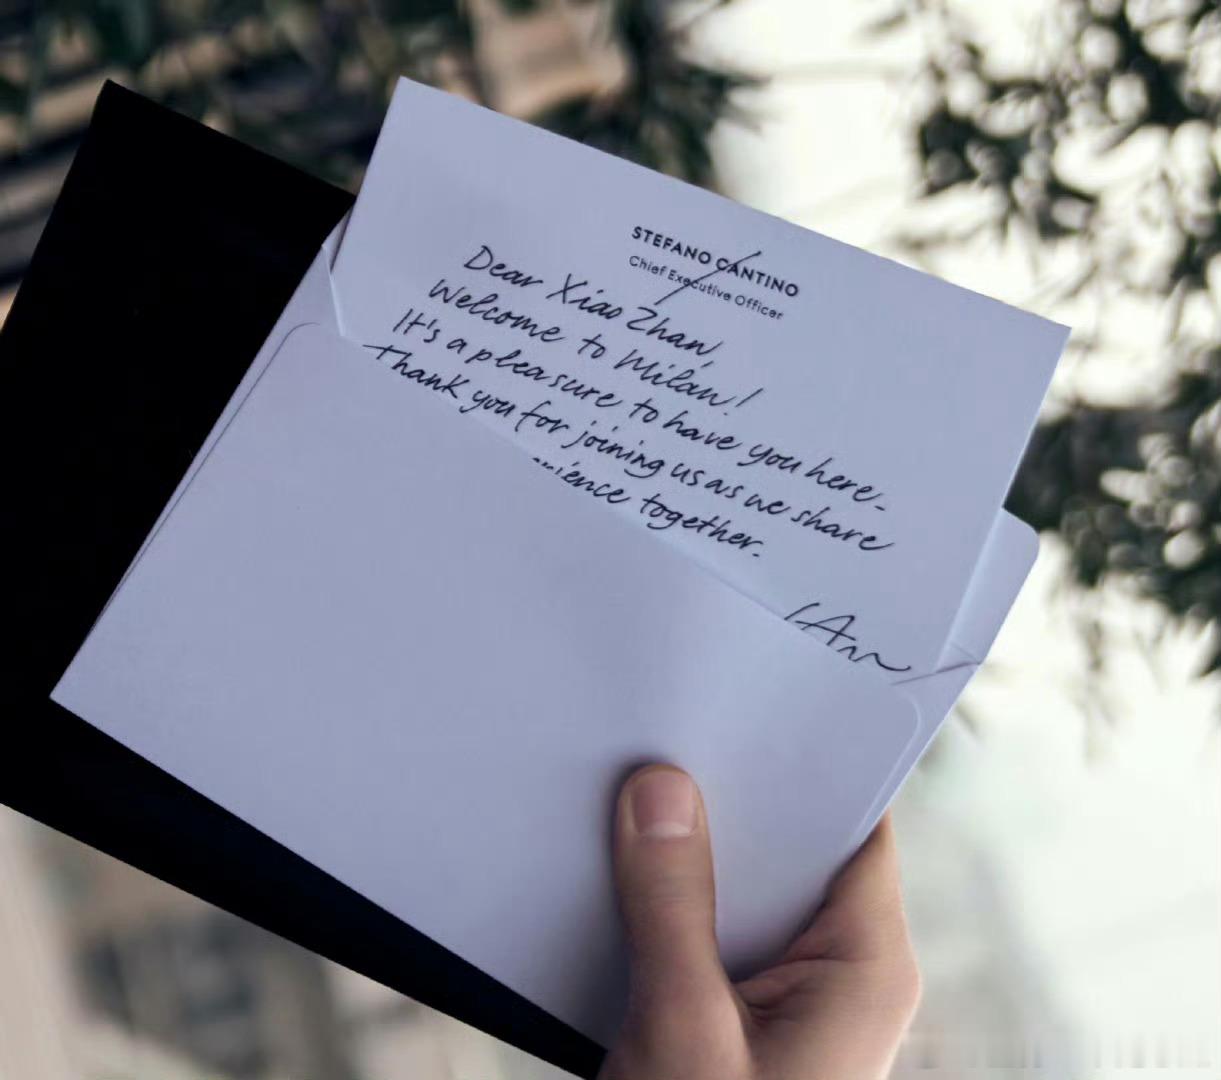 STEFANO CANTINO
Chief Executive Officer
Dear Xiao Zhan,
Welcome to Milan!
It's a pleasure to have you here-
Thank you for joining us as we share
together.